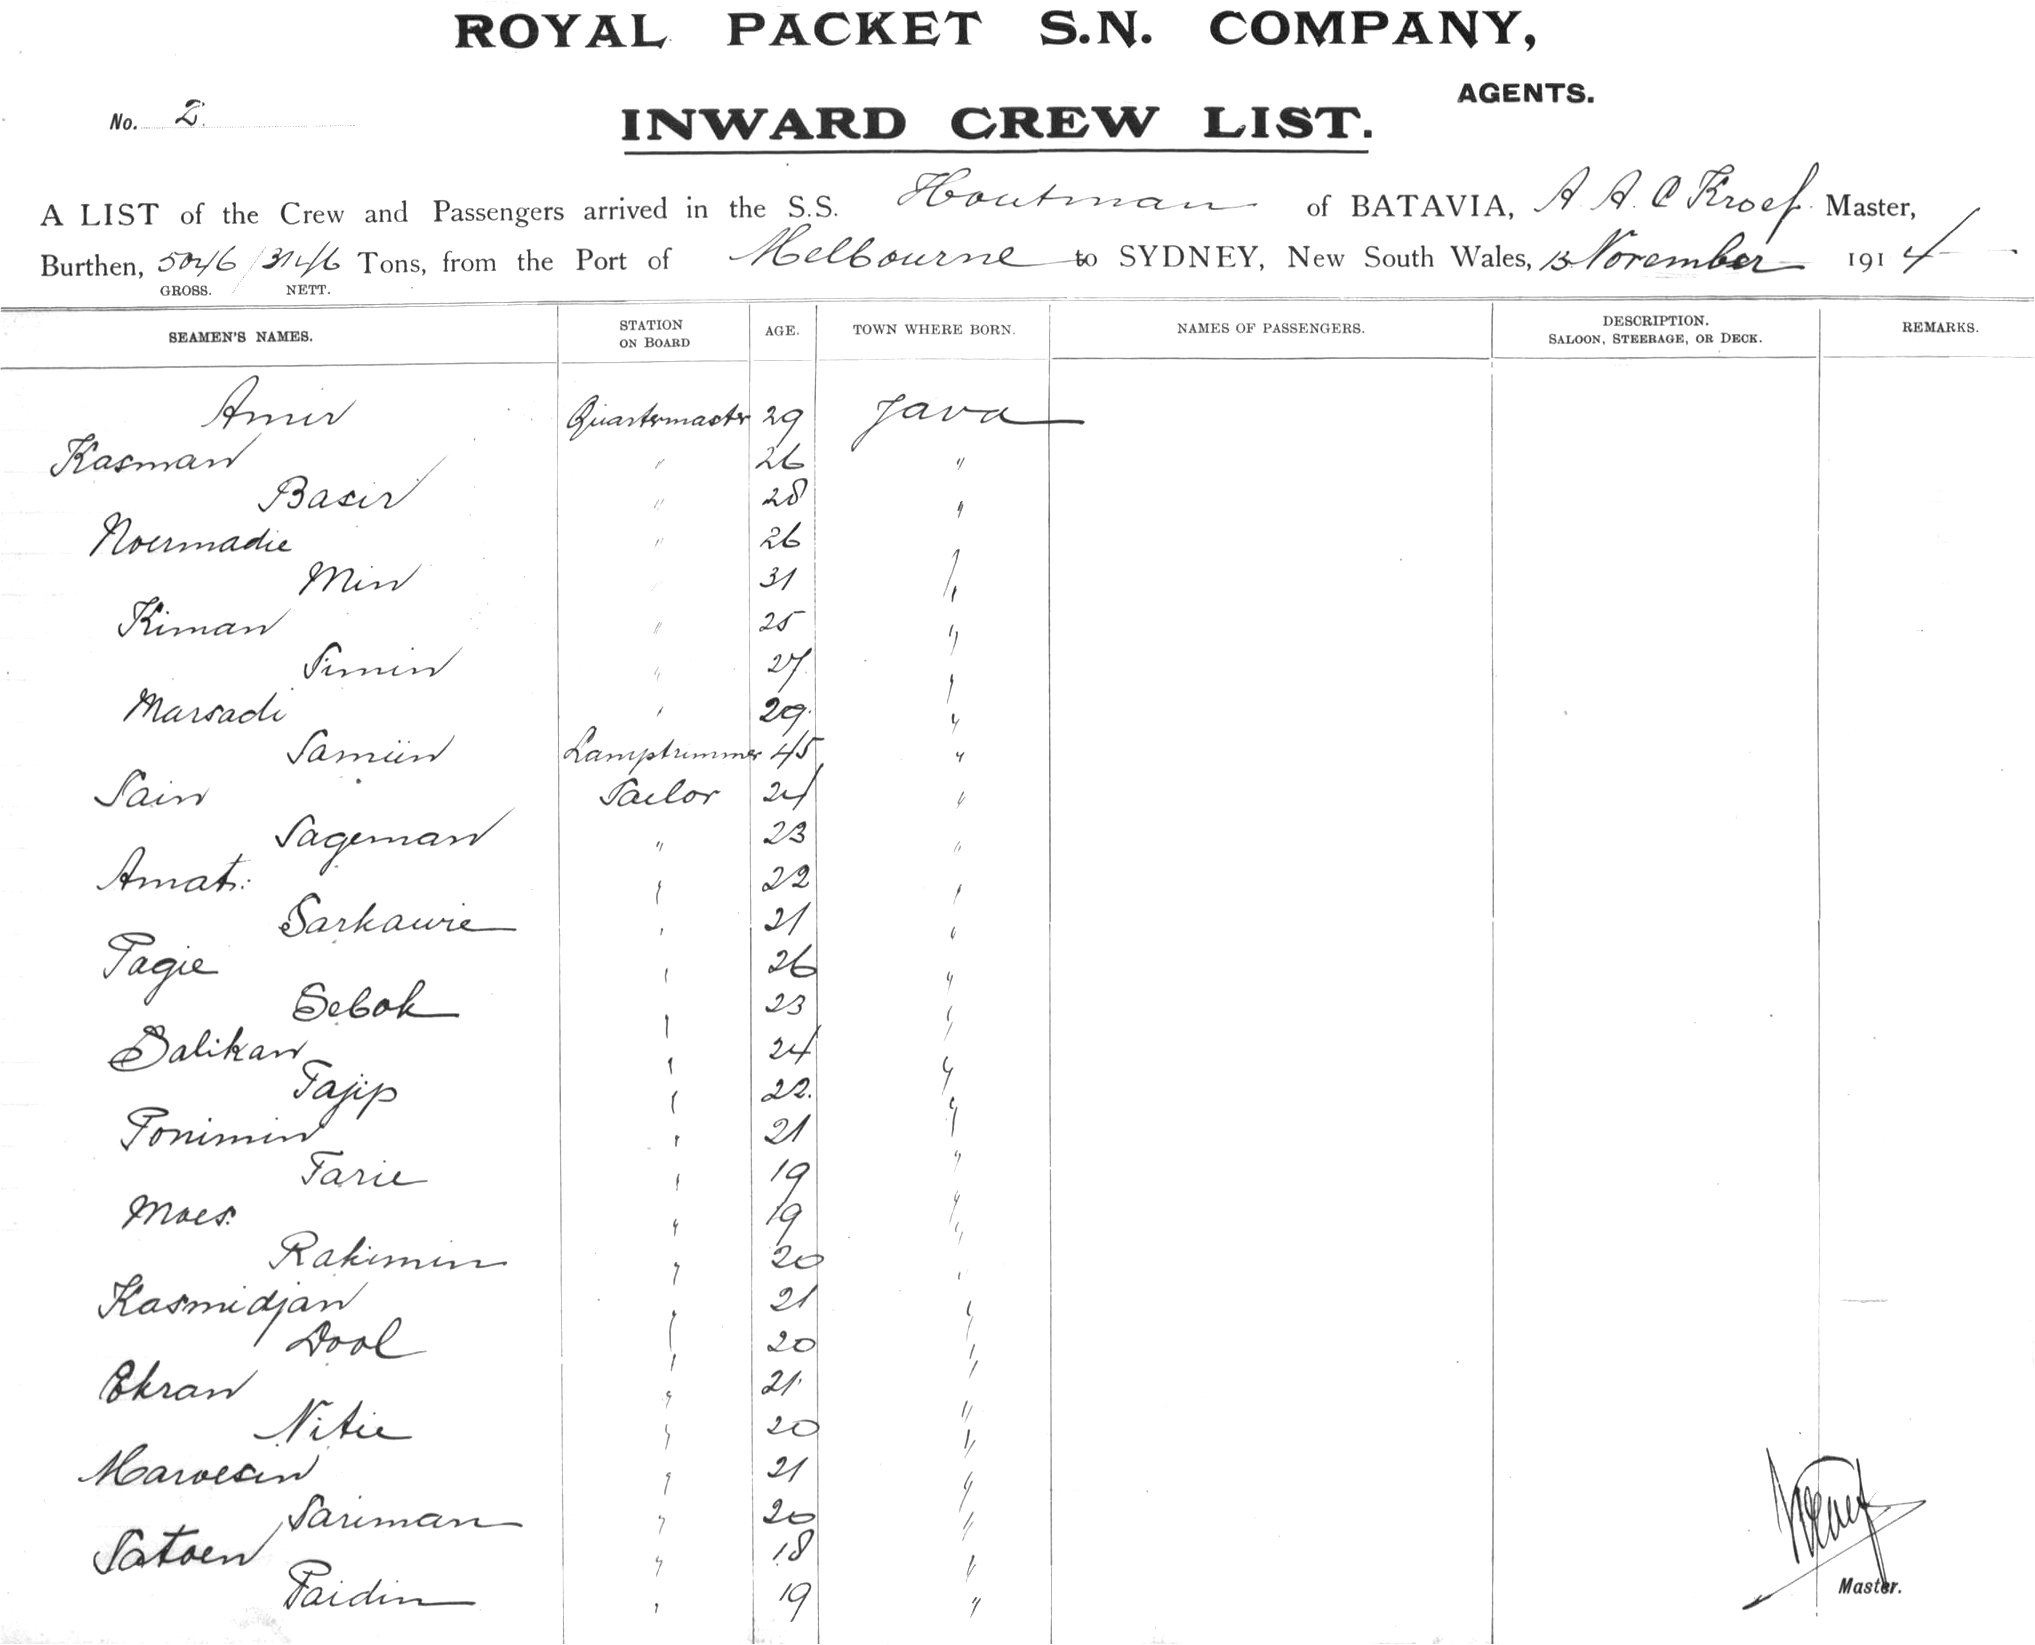 ROYAL PACKET S.N. COMPANY,
AGENTS.
No. 2.
INWARD CREW LIST.
A LIST of the Crew and Passengers arrived in the S.S. Houtman of BATAVIA, A A. C Kroef. Master,
Burthen, 5046 / 3146 Tons, from the Port of Melbourne to SYDNEY, New South Wales, 13 November 1914
GROSS. NETT.
SEAMEN'S NAMES. STATION ON BOARD AGE. TOWN WHERE BORN. NAMES OF PASSENGERS. DESCRIPTION. SALOON, STEERAGE, OR DECK. REMARKS.
Amir Quartermaster 29 Java
Kasman " 26 "
Basir " 28 "
Noermadie " 26 "
Min " 31 "
Kiman " 25 "
Simin " 27 "
Marsadi " 29 "
Samiin Lamptrimmer 45 "
Sain Sailor 24 "
Sageman " 23 "
Amat " 22 "
Sarkawie " 21 "
Pagie " 26 "
Sebok " 23 "
Salikan " 24 "
Tajip " 22 "
Ponimin " 21 "
Tarie " 19 "
Moes " 19 "
Rakimin " 20 "
Kasmidjan " 21 "
Dool " 20 "
Ekran " 21 "
Nitie " 20 "
Maroesin " 21 "
Sariman " 20 "
Satoen " 18 "
Paidin " 19 "
Master.